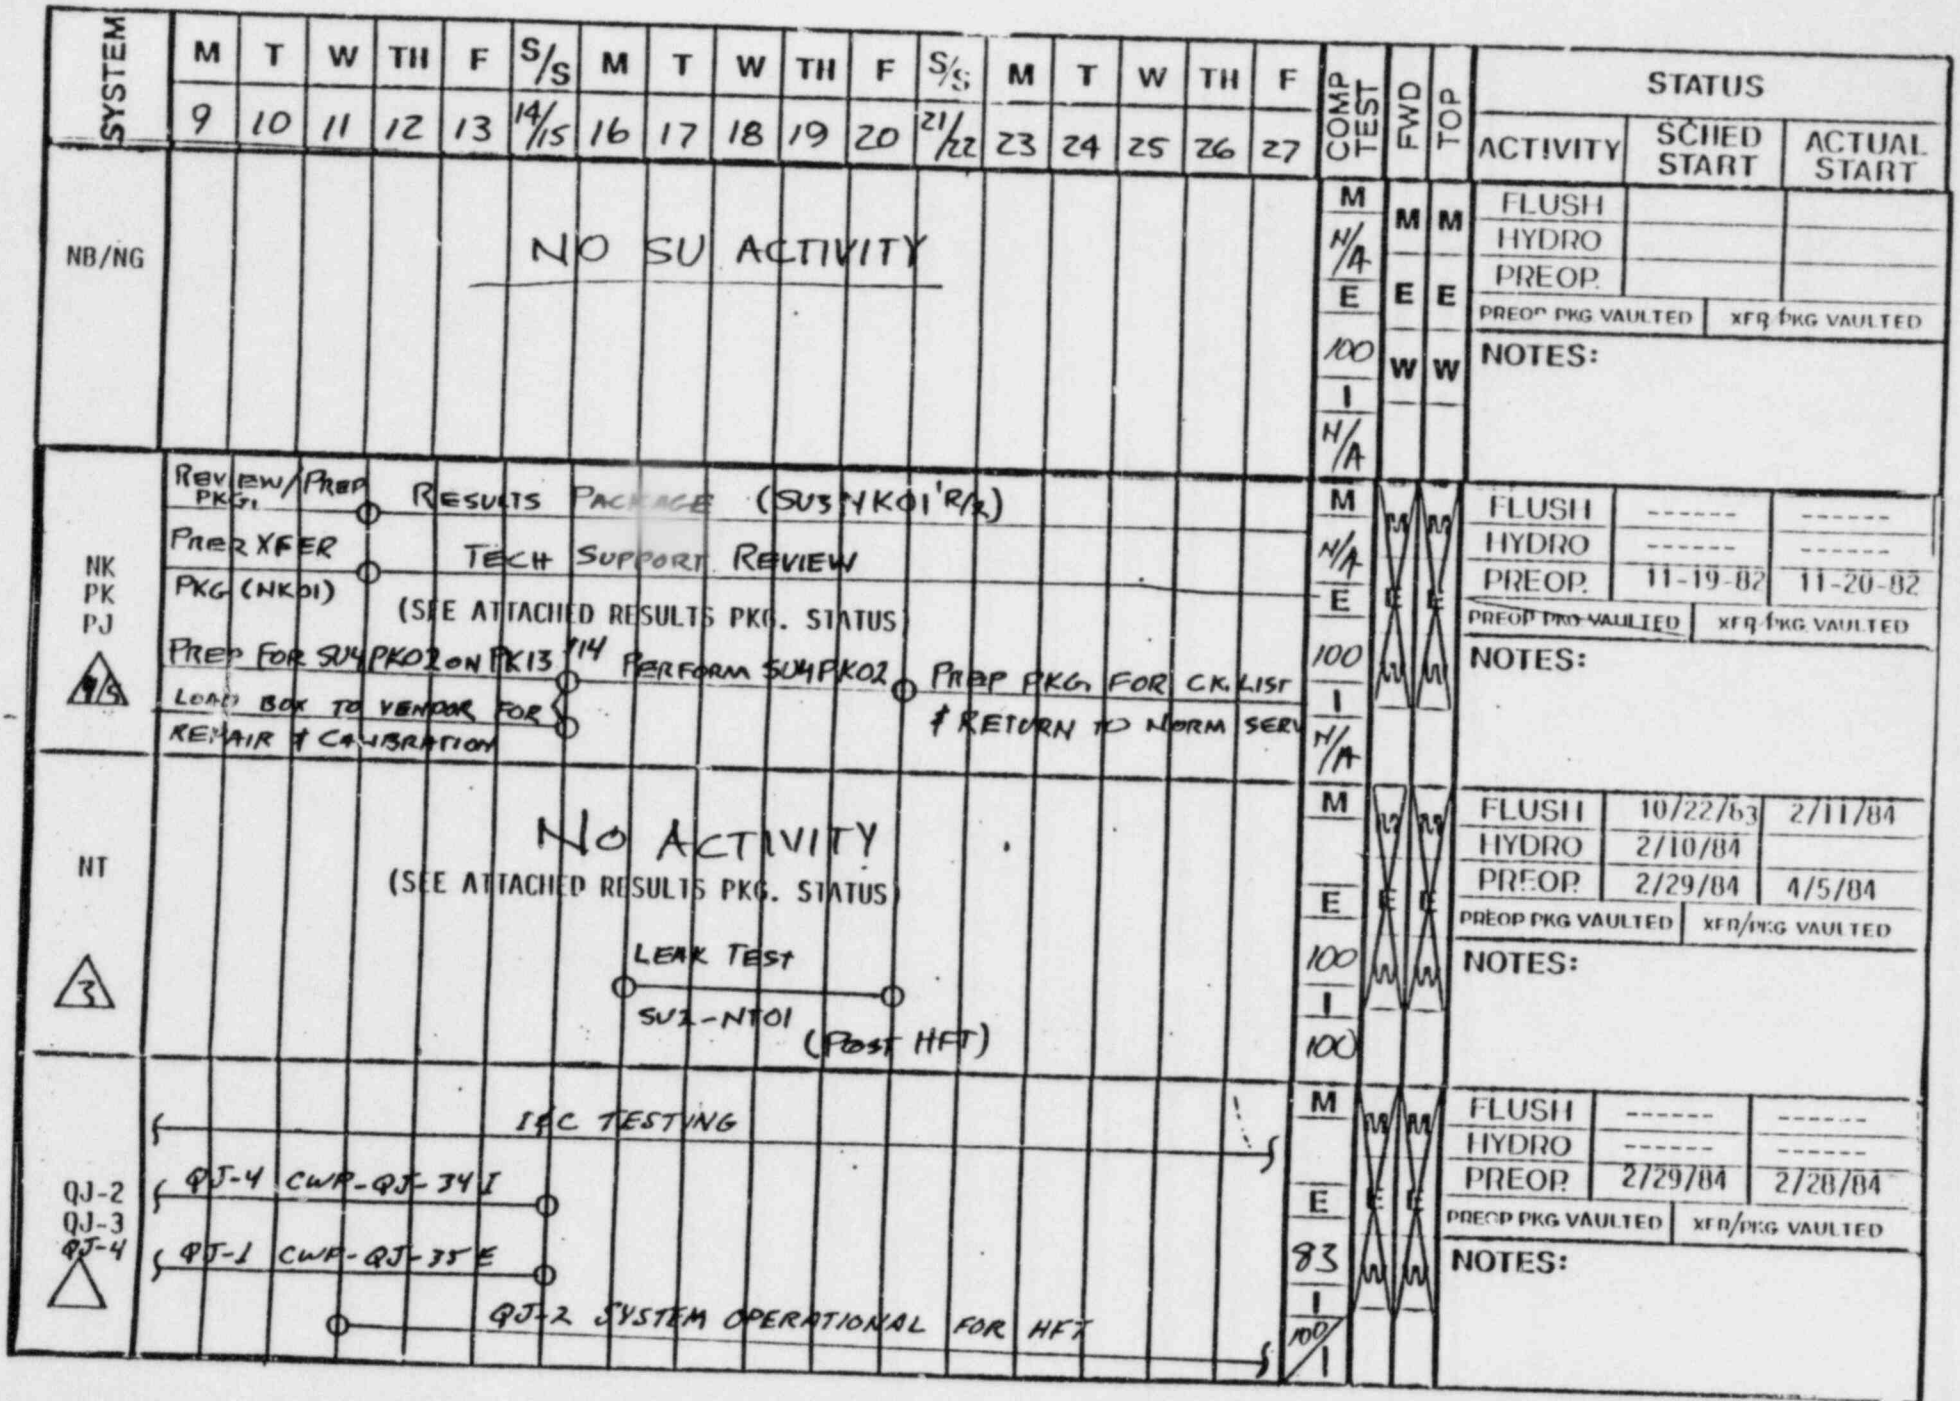 SYSTEM M T W TH F S/S M T W TH F S/S M T W TH F COMP TEST FWD TOP STATUS
9 10 11 12 13 14/15 16 17 18 19 20 21/22 23 24 25 26 27 ACTIVITY SCHED START ACTUAL START
NB/NG
NO SU ACTIVITY
M
N/A
E
100
I
N/A
M E W
M E W
FLUSH
HYDRO
PREOP.
PREOP PKG VAULTED XFR/PKG VAULTED
NOTES:
NK
PK
PJ
REVIEW/PREP PKG.
RESULTS PACKAGE
PREP XFER
PKG (NK01)
TECH SUPPORT REVIEW
(SEE ATTACHED RESULTS PKG. STATUS)
PREP FOR SU4PK02 ON PK13
PERFORM SU4PK02
PREP PKG. FOR CK. LIST
& RETURN TO NORM SERV
LOAD BOX TO VENDOR FOR
REPAIR & CALIBRATION
M
N/A
E
100
I
N/A
M E W
M E W
FLUSH ------ ------
HYDRO ------ ------
PREOP. 11-19-82 11-20-82
PREOP PKG VAULTED XFR/PKG VAULTED
NOTES:
NT
3
NO ACTIVITY
(SEE ATTACHED RESULTS PKG. STATUS)
LEAK TEST
SU2-NT01
(POST HFT)
M
E
100
I
100
M E W
M E W
FLUSH 10/22/63 2/11/84
HYDRO 2/10/84
PREOP. 2/29/84 4/5/84
PREOP PKG VAULTED XFR/PKG VAULTED
NOTES:
QJ-2
QJ-3
QJ-4
I&C TESTING
QJ-4 CWP-QJ-34 I
QJ-1 CWP-QJ-35 E
QJ-2 SYSTEM OPERATIONAL FOR HFT
M
E
83
I
100/1
M E W
M E W
FLUSH ------ ------
HYDRO ------ ------
PREOP. 2/29/84 2/28/84
PREOP PKG VAULTED XFR/PKG VAULTED
NOTES: